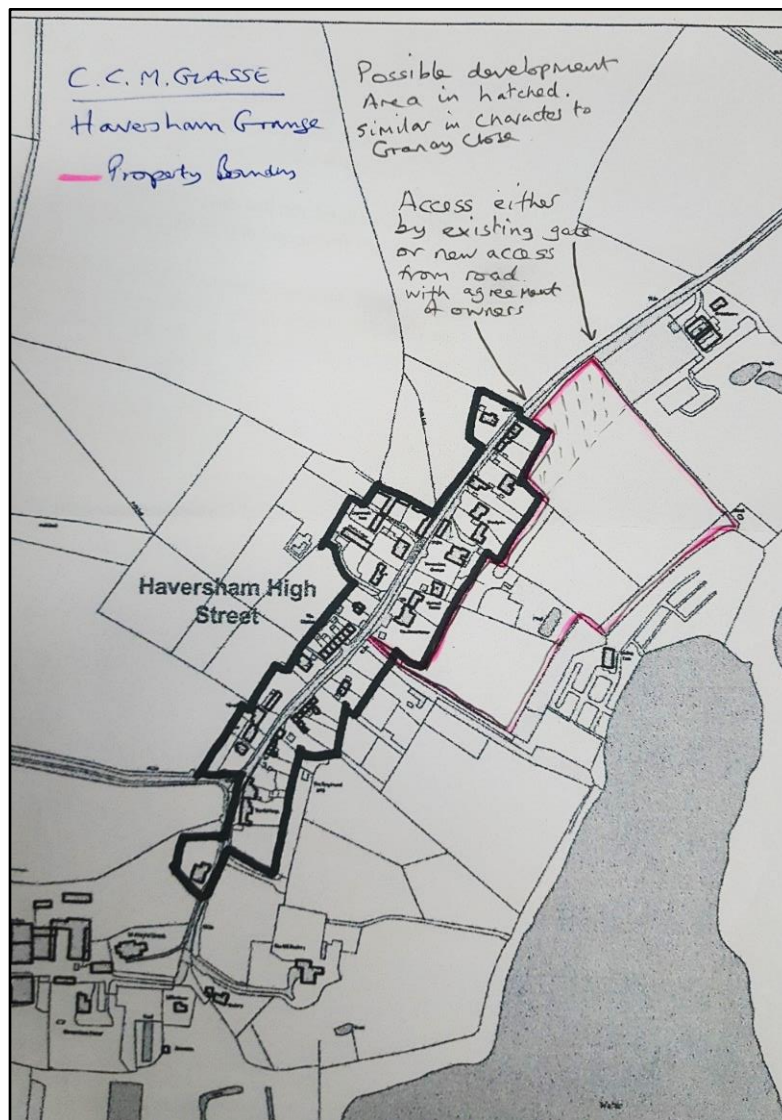 C.C.M. GLASSE
Haversham Grange
Property Boundary
Possible development
Area in hatched.
similar in character to
Granary Close
Access either
by existing gate
or new access
from road
with agreement
of owners
Haversham High
Street
Water